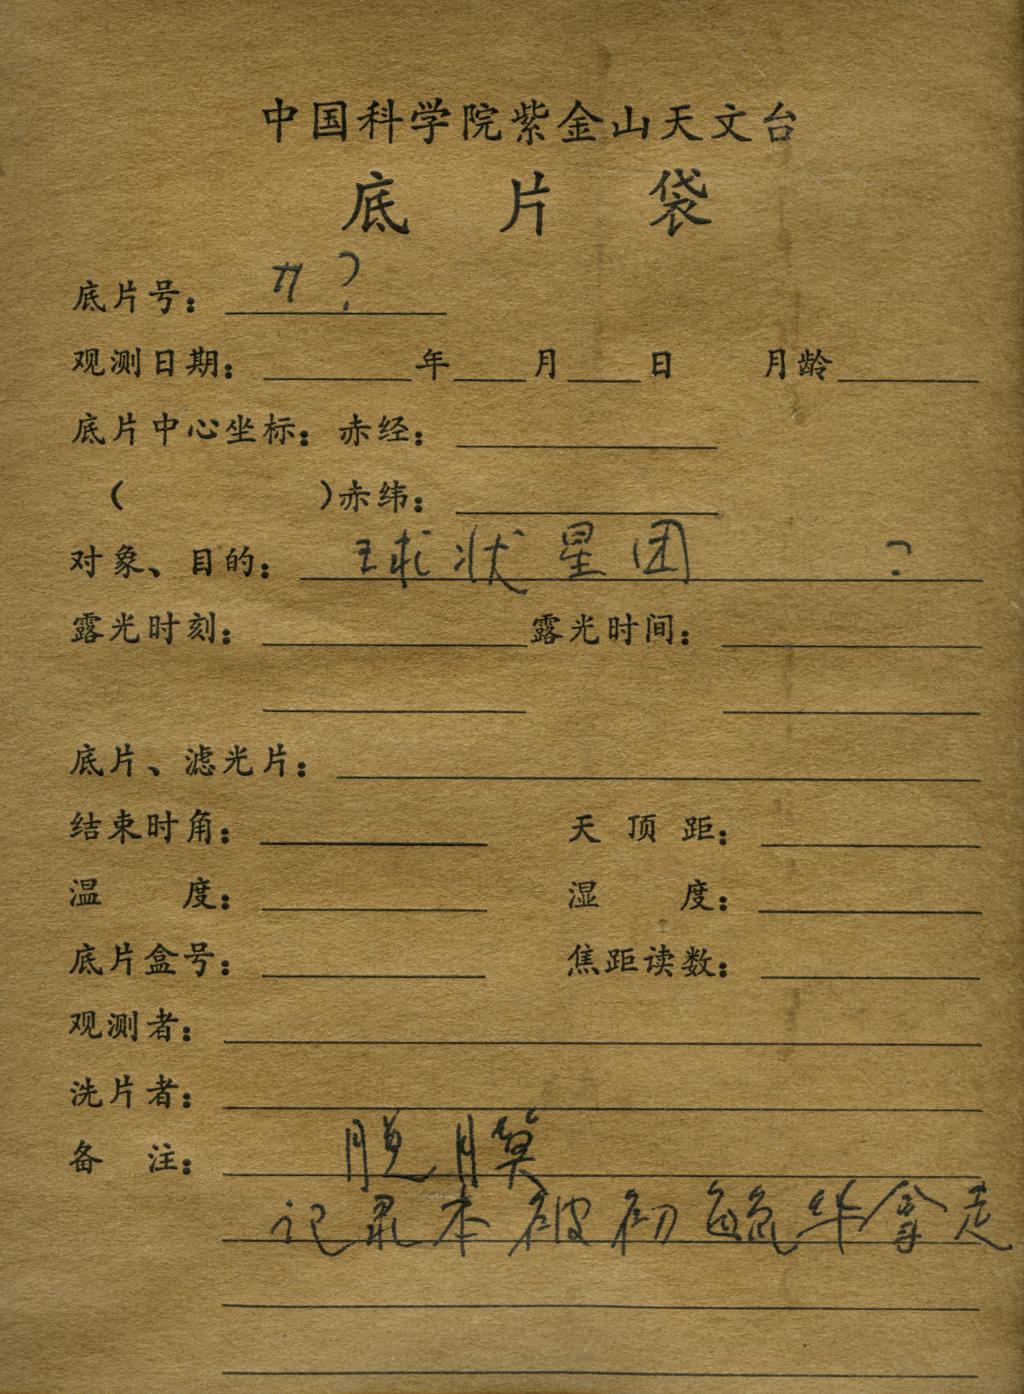 中国科学院紫金山天文台
底片袋
底片号： ?
观测日期： 年 月 日 月龄
底片中心坐标：赤经：
( )赤纬：
对象、目的： 球状星团 ?
露光时刻： 露光时间：
底片、滤光片：
结束时角： 天顶距：
温度： 湿度：
底片盒号： 焦距读数：
观测者：
洗片者：
备注： 脱膜
记录本被初毓华拿走